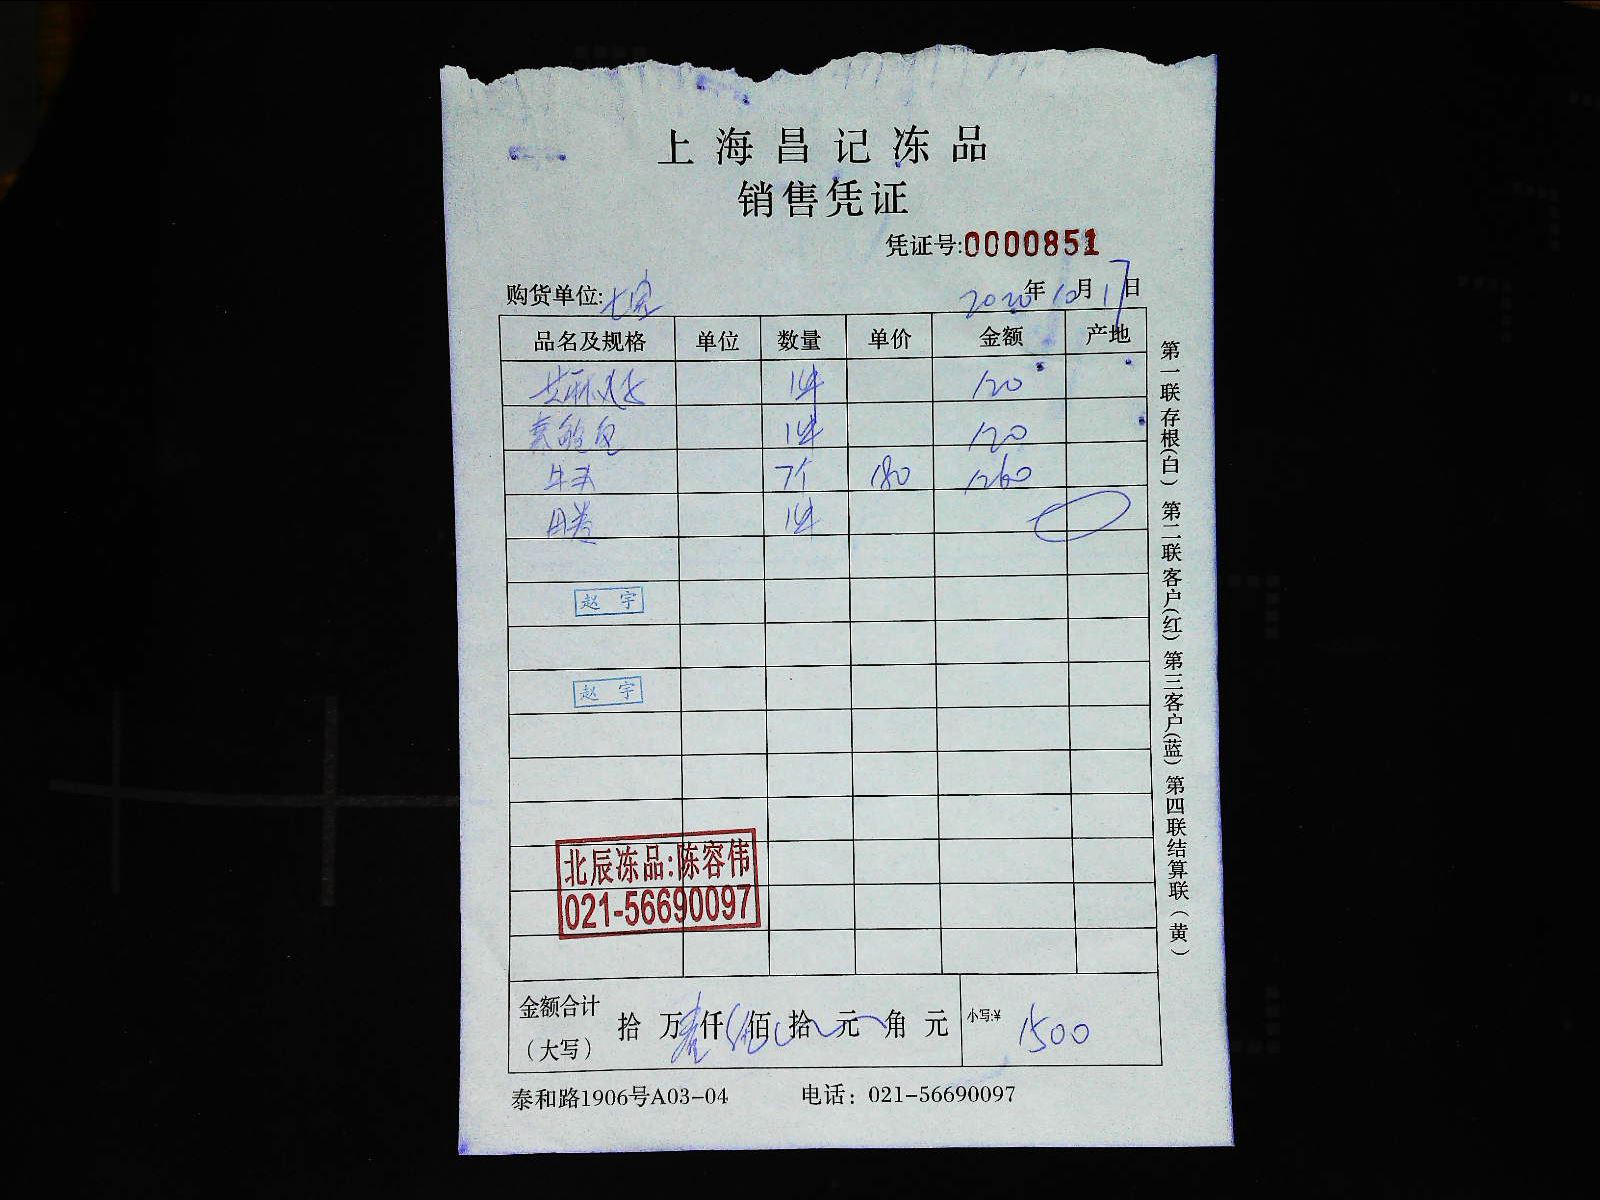 上海昌记冻品
销售凭证
凭证号:0000851
购货单位:七宝 2020年10月17日
品名及规格 单位 数量 单价 金额 产地
1件 120
1件 120
牛头 7个 180 1260
1件
赵宇
赵宇
北辰冻品:陈容伟
021-56690097
金额合计（大写） 拾 万壹仟伍佰 拾 元 角 元 小写:¥ 1500
泰和路1906号A03-04 电话：021-56690097
第一联存根(白) 第二联客户(红) 第三客户(蓝) 第四联结算联(黄)